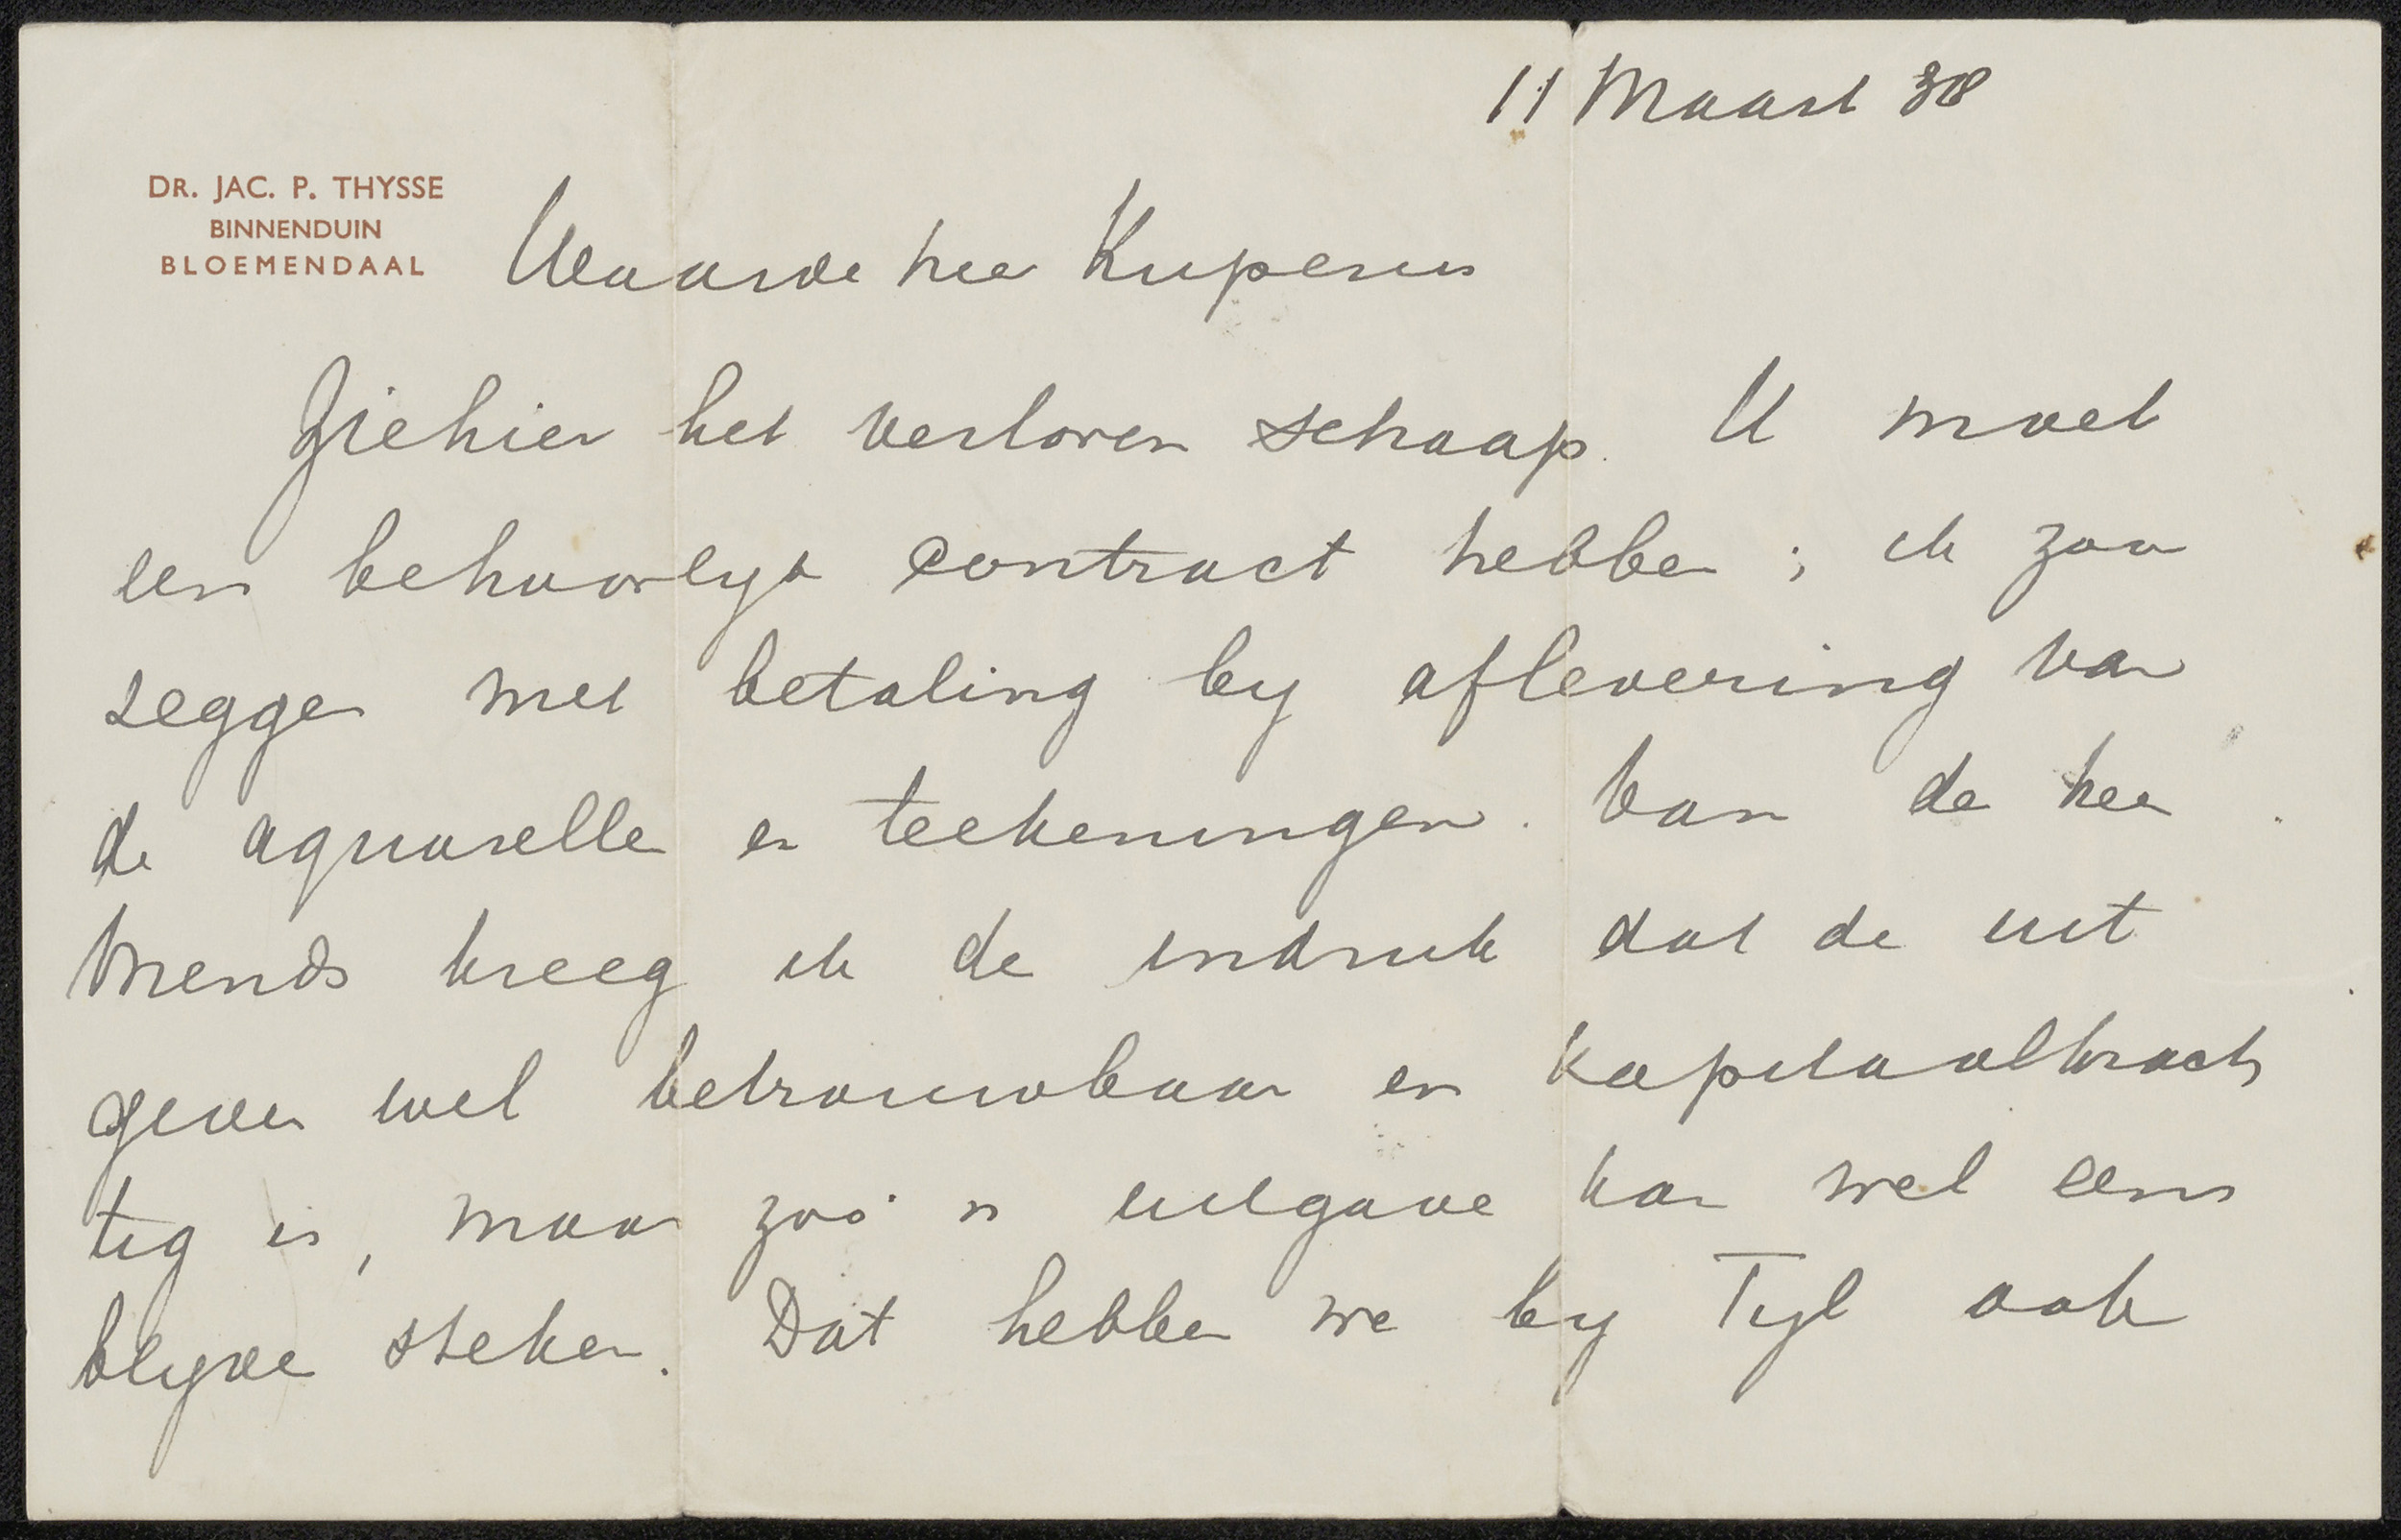 11 Maart 38
DR. JAC. P. THYSSE
BINNENDUIN
BLOEMENDAAL
Waarde heer Kuperus
Ziehier het verloren schaap. U moet
een behoorlyk contract hebben; ik zou
zeggen met betaling by aflevering van
de aquarellen en teekeningen. Van de heer
Vriends kreeg ik de indruk dat de uit
gever wel betrouwbaar en kapitaalkrach
tig is, maar zoo'n uitgave kan wel eens
blyven steken. Dat hebben we by Tyl ook